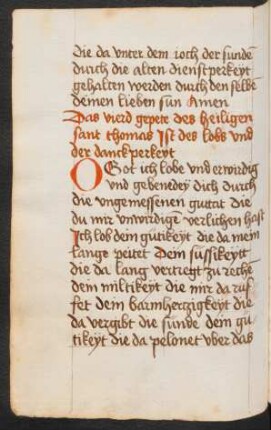 die da vnter dem ioch der sunde
durch die alten dienstperkeyt
gehalten werden durch den selbē
deinen lieben sun Amen
Das vierd gepete des heiligen
sant thomas Ist des lobs vnd
der danckperkeyt
O Got ich lobe vnd erwirdig
vnd gebenedey dich durch
die vngemessenen guttat die
du mir vnwirdige verlichen hast
Ich lob dein gutikeyt die da mein
lange peitet Dein sussikeytt
die da lang vertregt zu rechē
dein miltikeyt die mir da ruf
fet dein barmhertzigkeyt die
da vergibt die sunde dein gu
tikeyt die da pelonet vber das